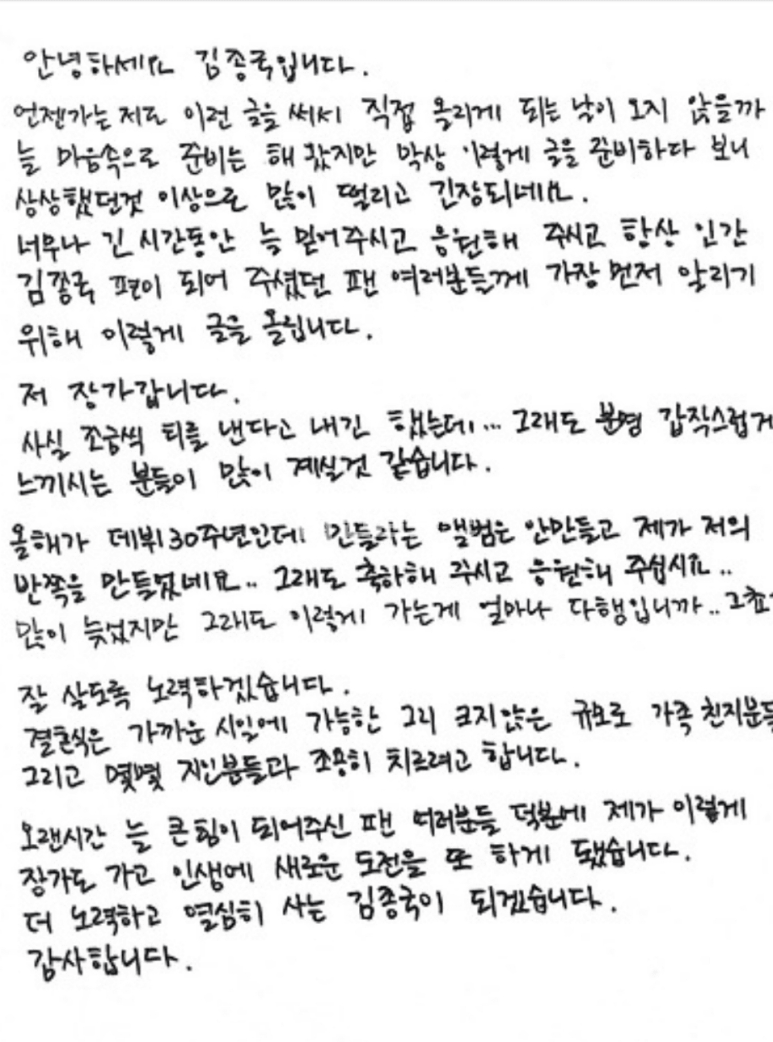 안녕하세요 김종국입니다.
언젠가는 저도 이런 글을 써서 직접 올리게 되는 날이 오지 않을까
늘 마음속으로 준비는 해 왔지만 막상 이렇게 글을 준비하다 보니
상상했던것 이상으로 많이 떨리고 긴장되네요.
너무나 긴 시간동안 늘 믿어주시고 응원해 주시고 항상 인간
김종국 편이 되어 주셨던 팬 여러분들께 가장 먼저 알리기
위해 이렇게 글을 올립니다.
저 장가갑니다.
사실 조금씩 티를 낸다고 내긴 했는데... 그래도 분명 갑작스럽게
느끼시는 분들이 많이 계실것 같습니다.
올해가 데뷔 30주년인데 만들라는 앨범은 안만들고 제가 저의
반쪽을 만들었네요.. 그래도 축하해 주시고 응원해 주십시요..
많이 늦었지만 그래도 이렇게 가는게 얼마나 다행입니까.. 그쵸
잘 살도록 노력하겠습니다.
결혼식은 가까운 시일에 가능한 그리 크지않은 규모로 가족 친지분들
그리고 몇몇 지인분들과 조용히 치르려고 합니다.
오랜시간 늘 큰 힘이 되어주신 팬 여러분들 덕분에 제가 이렇게
장가도 가고 인생에 새로운 도전을 또 하게 됐습니다.
더 노력하고 열심히 사는 김종국이 되겠습니다.
감사합니다.